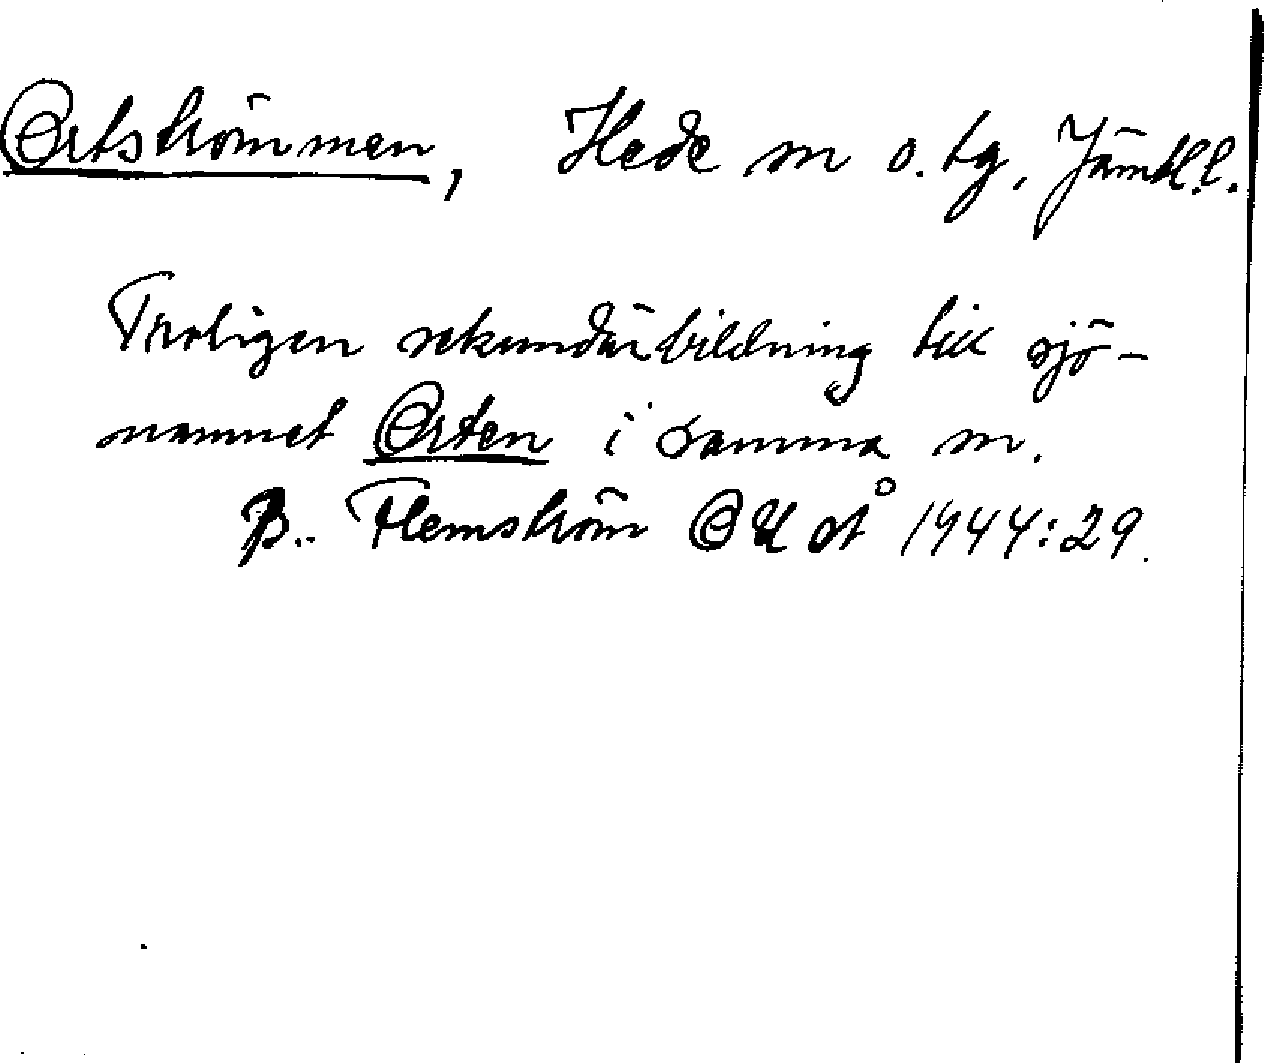 Ortströmmen, Hede sn o. tg, Jämtl. l.
Troligen sekundärbildning till sjö-
namnet Orten i samma sn.
B. Flemström OUÅ 1944:29.